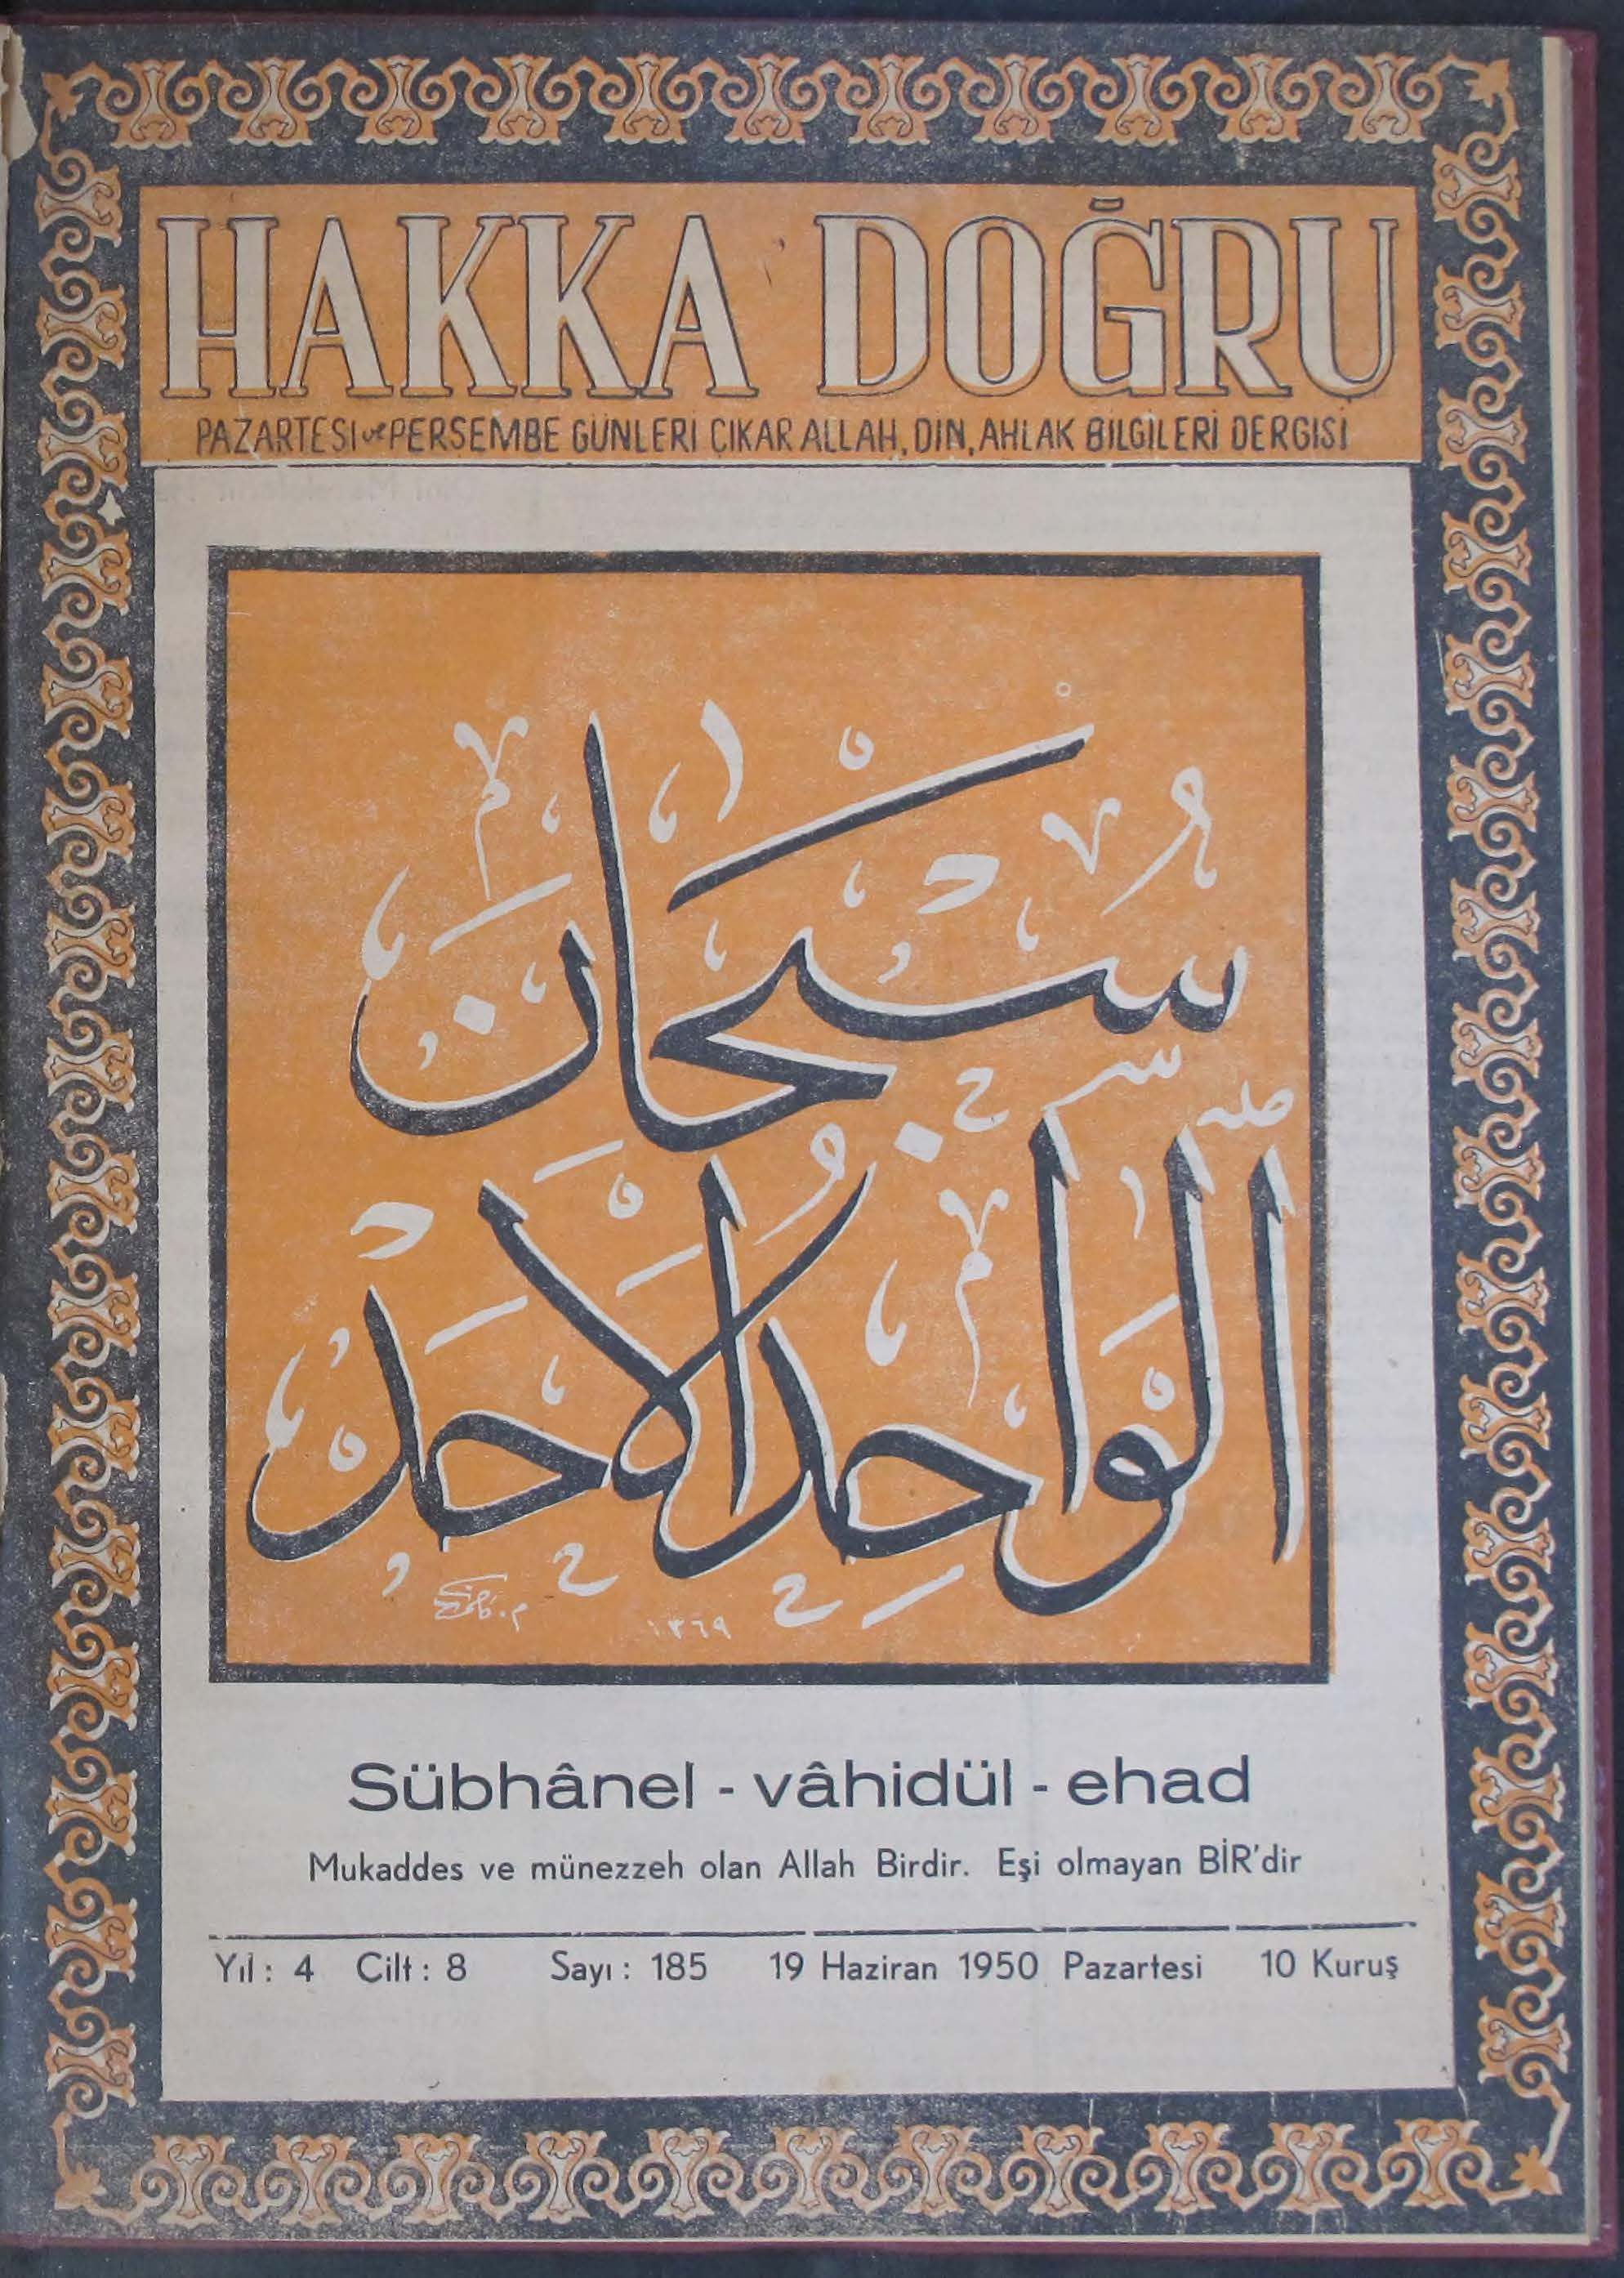 HAKKA DOĞRU
PAZARTESI ve PERSEMBE GÜNLERİ CIKAR ALLAH, DİN, AHLAK BİLGİLERİ DERGİSİ
سُبْحَانَ
الْوَاحِدِ الْاَحَدِ
١٣٦٩
Sübhânel - vâhidül - ehad
Mukaddes ve münezzeh olan Allah Birdir. Eşi olmayan BİR'dir
Yıl : 4 Cilt : 8 Sayı : 185 19 Haziran 1950 Pazartesi 10 Kuruş